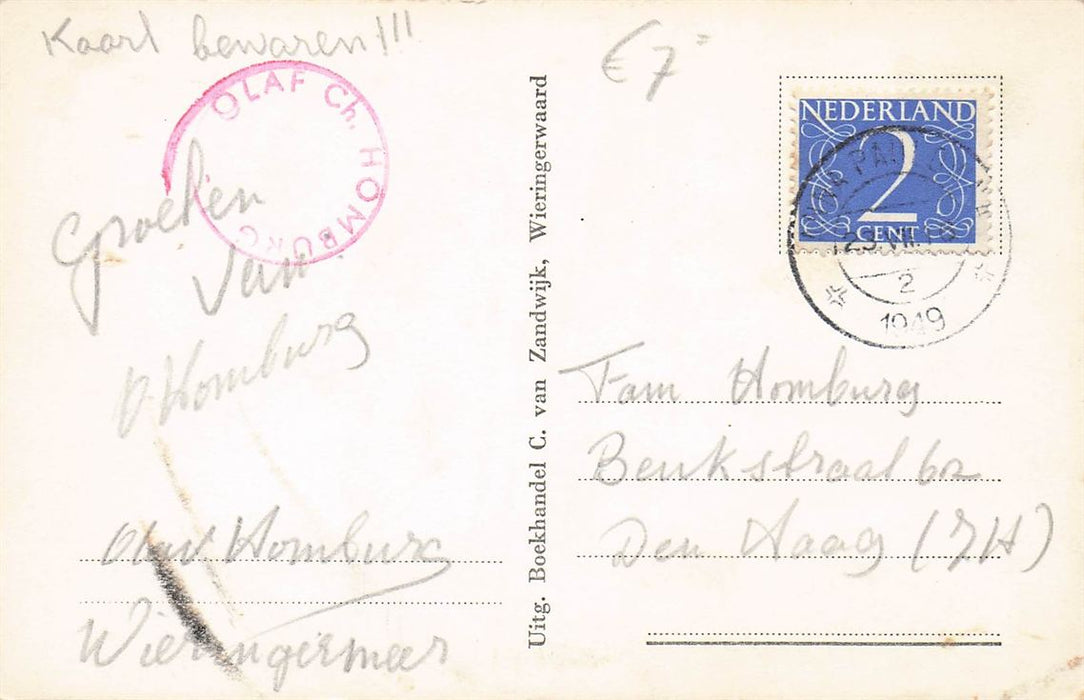 Kaart bewaren!!!
€ 7=
OLAF Ch. HOMBURG
Groeten
van
O. Homburg
Olaf Homburg
Wieringermeer
Uitg. Boekhandel C. van Zandwijk, Wieringerwaard
NEDERLAND
2
CENT
23.VII
2
1949
Fam Homburg
Beukstraat 62
Den Haag (ZH)